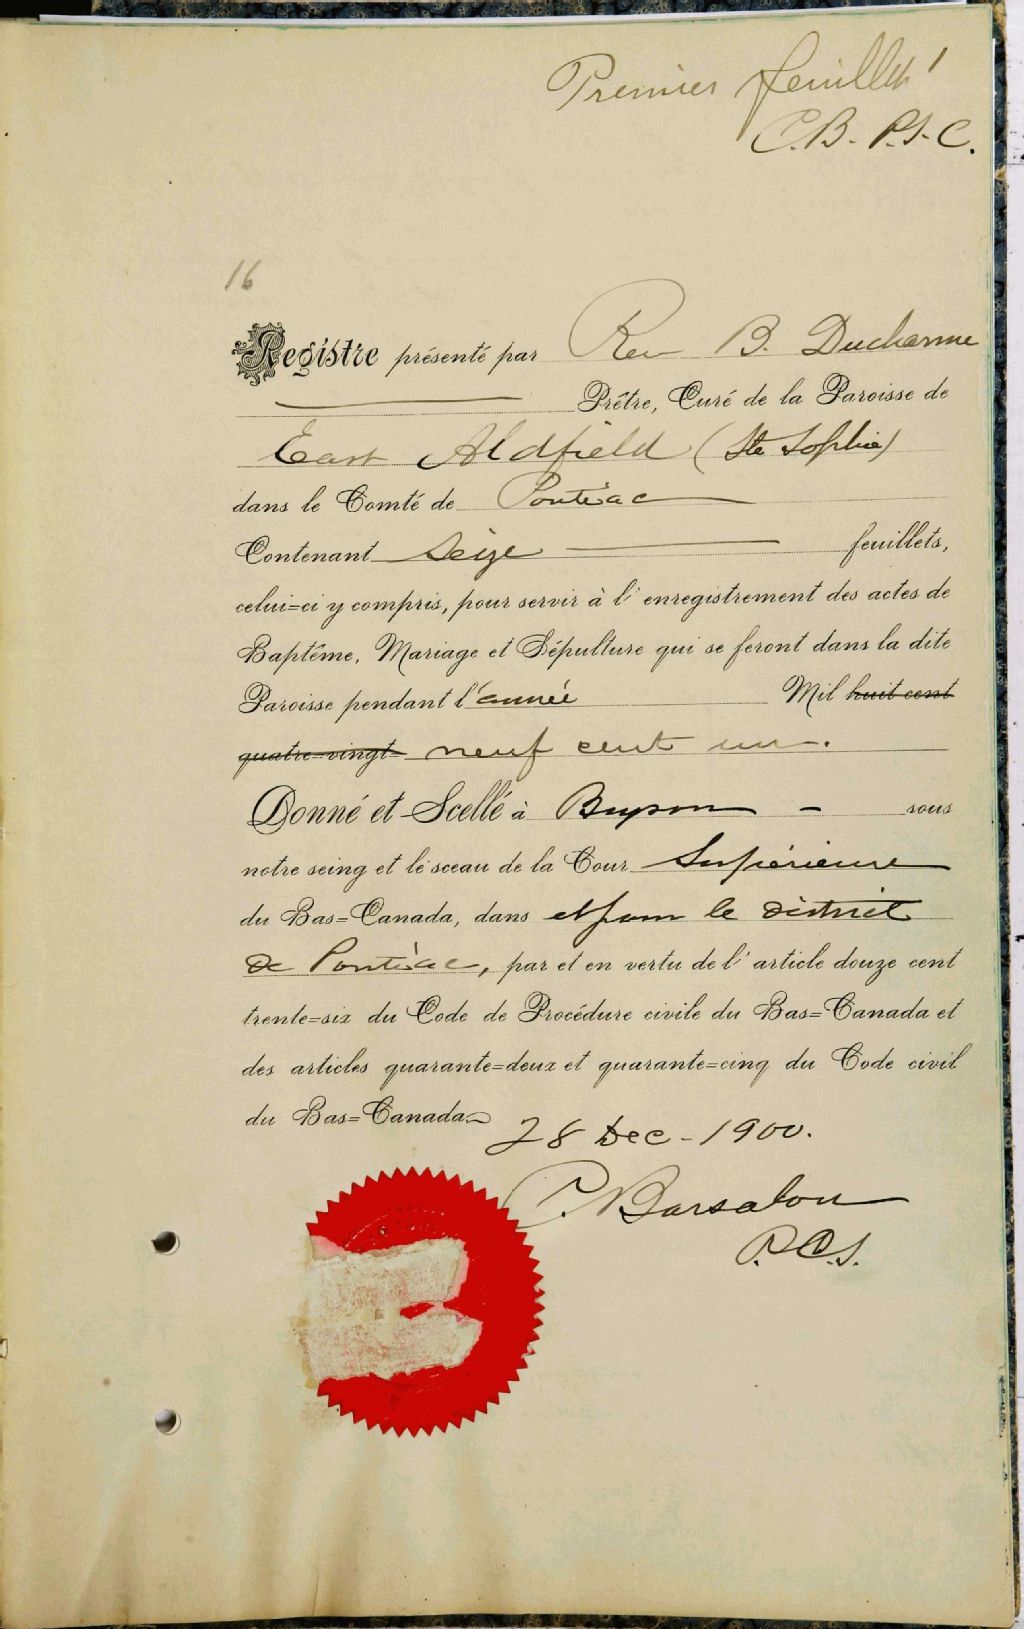 Premier feuillet
C.B. P.S.C.
16
Registre présenté par Rev B. Ducharme
Prêtre, Curé de la Paroisse de
East Aldfield (Ste Sophie)
dans le Comté de Pontiac
Contenant Seize feuillets,
celui=ci y compris, pour servir à l'enregistrement des actes de
Baptême, Mariage et Sépulture qui se feront dans la dite
Paroisse pendant l'année Mil huit cent
quatre-vingt neuf cent un.
Donné et Scellé à Bryson - sous
notre seing et le sceau de la Cour Supérieure
du Bas=Canada, dans et pour le district
de Pontiac, par et en vertu de l'article douze cent
trente=six du Code de Procédure civile du Bas=Canada et
des articles quarante=deux et quarante=cinq du Code civil
du Bas=Canada
28 Dec - 1900.
C. Barsalou
P.C.S.